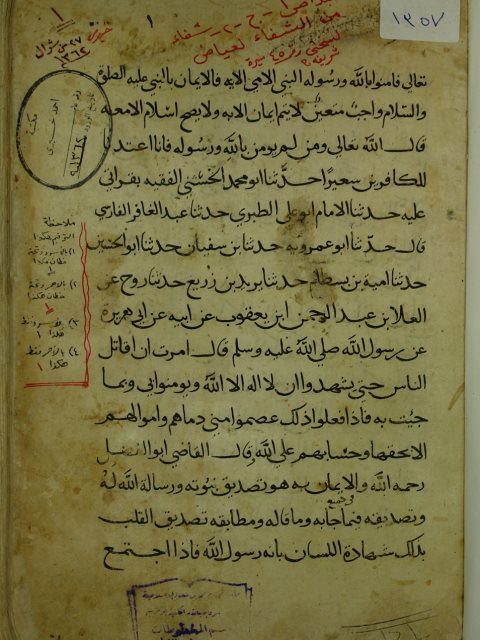 ١٣٥٧
١
١
من الشفاء لعياض
٢٧ من شوال
١٣٦٢
تعالى فامنوا بالله ورسوله النبي الامي الايه فالايمان بالنبي عليه الصلوة
والسلام واجب متعين لا يتم ايمان الا به ولا يصح اسلام الا معه
قال الله تعالى ومن لم يومن بالله ورسوله فانا اعتدنا
للكافرين سعيرا حدثنا ابو محمد الخشني الفقيه بقراتي
عليه حدثنا الامام ابو علي الطبري حدثنا عبد الغافر الفارسي
قال حدثنا ابو عمرويه حدثنا بن سفيان حدثنا ابو الحسين
حدثنا امية بن بسطام حدثنا يزيد بن زريع حدثنا روح عن
العلا بن عبد الرحمن ابن يعقوب عن ابيه عن ابي هريرة
عن رسول الله صلى الله عليه وسلم قال امرت ان اقاتل
الناس حتى يشهدوا ان لا اله الا الله ويومنوا بي وبما
جيت به فاذا فعلوا ذلك عصموا مني دماهم واموالهم
الا بحقها وحسابهم على الله قال القاضي ابو الفضل
رحمه الله والايمان به هو تصديق نبوته ورسالة الله له
وتصديقه في جميع ما جا به وما قاله ومطابقه تصديق القلب
بذلك شهادة اللسان بانه رسول الله فاذا اجتمع
ملاحظة
الترقيم هكذا